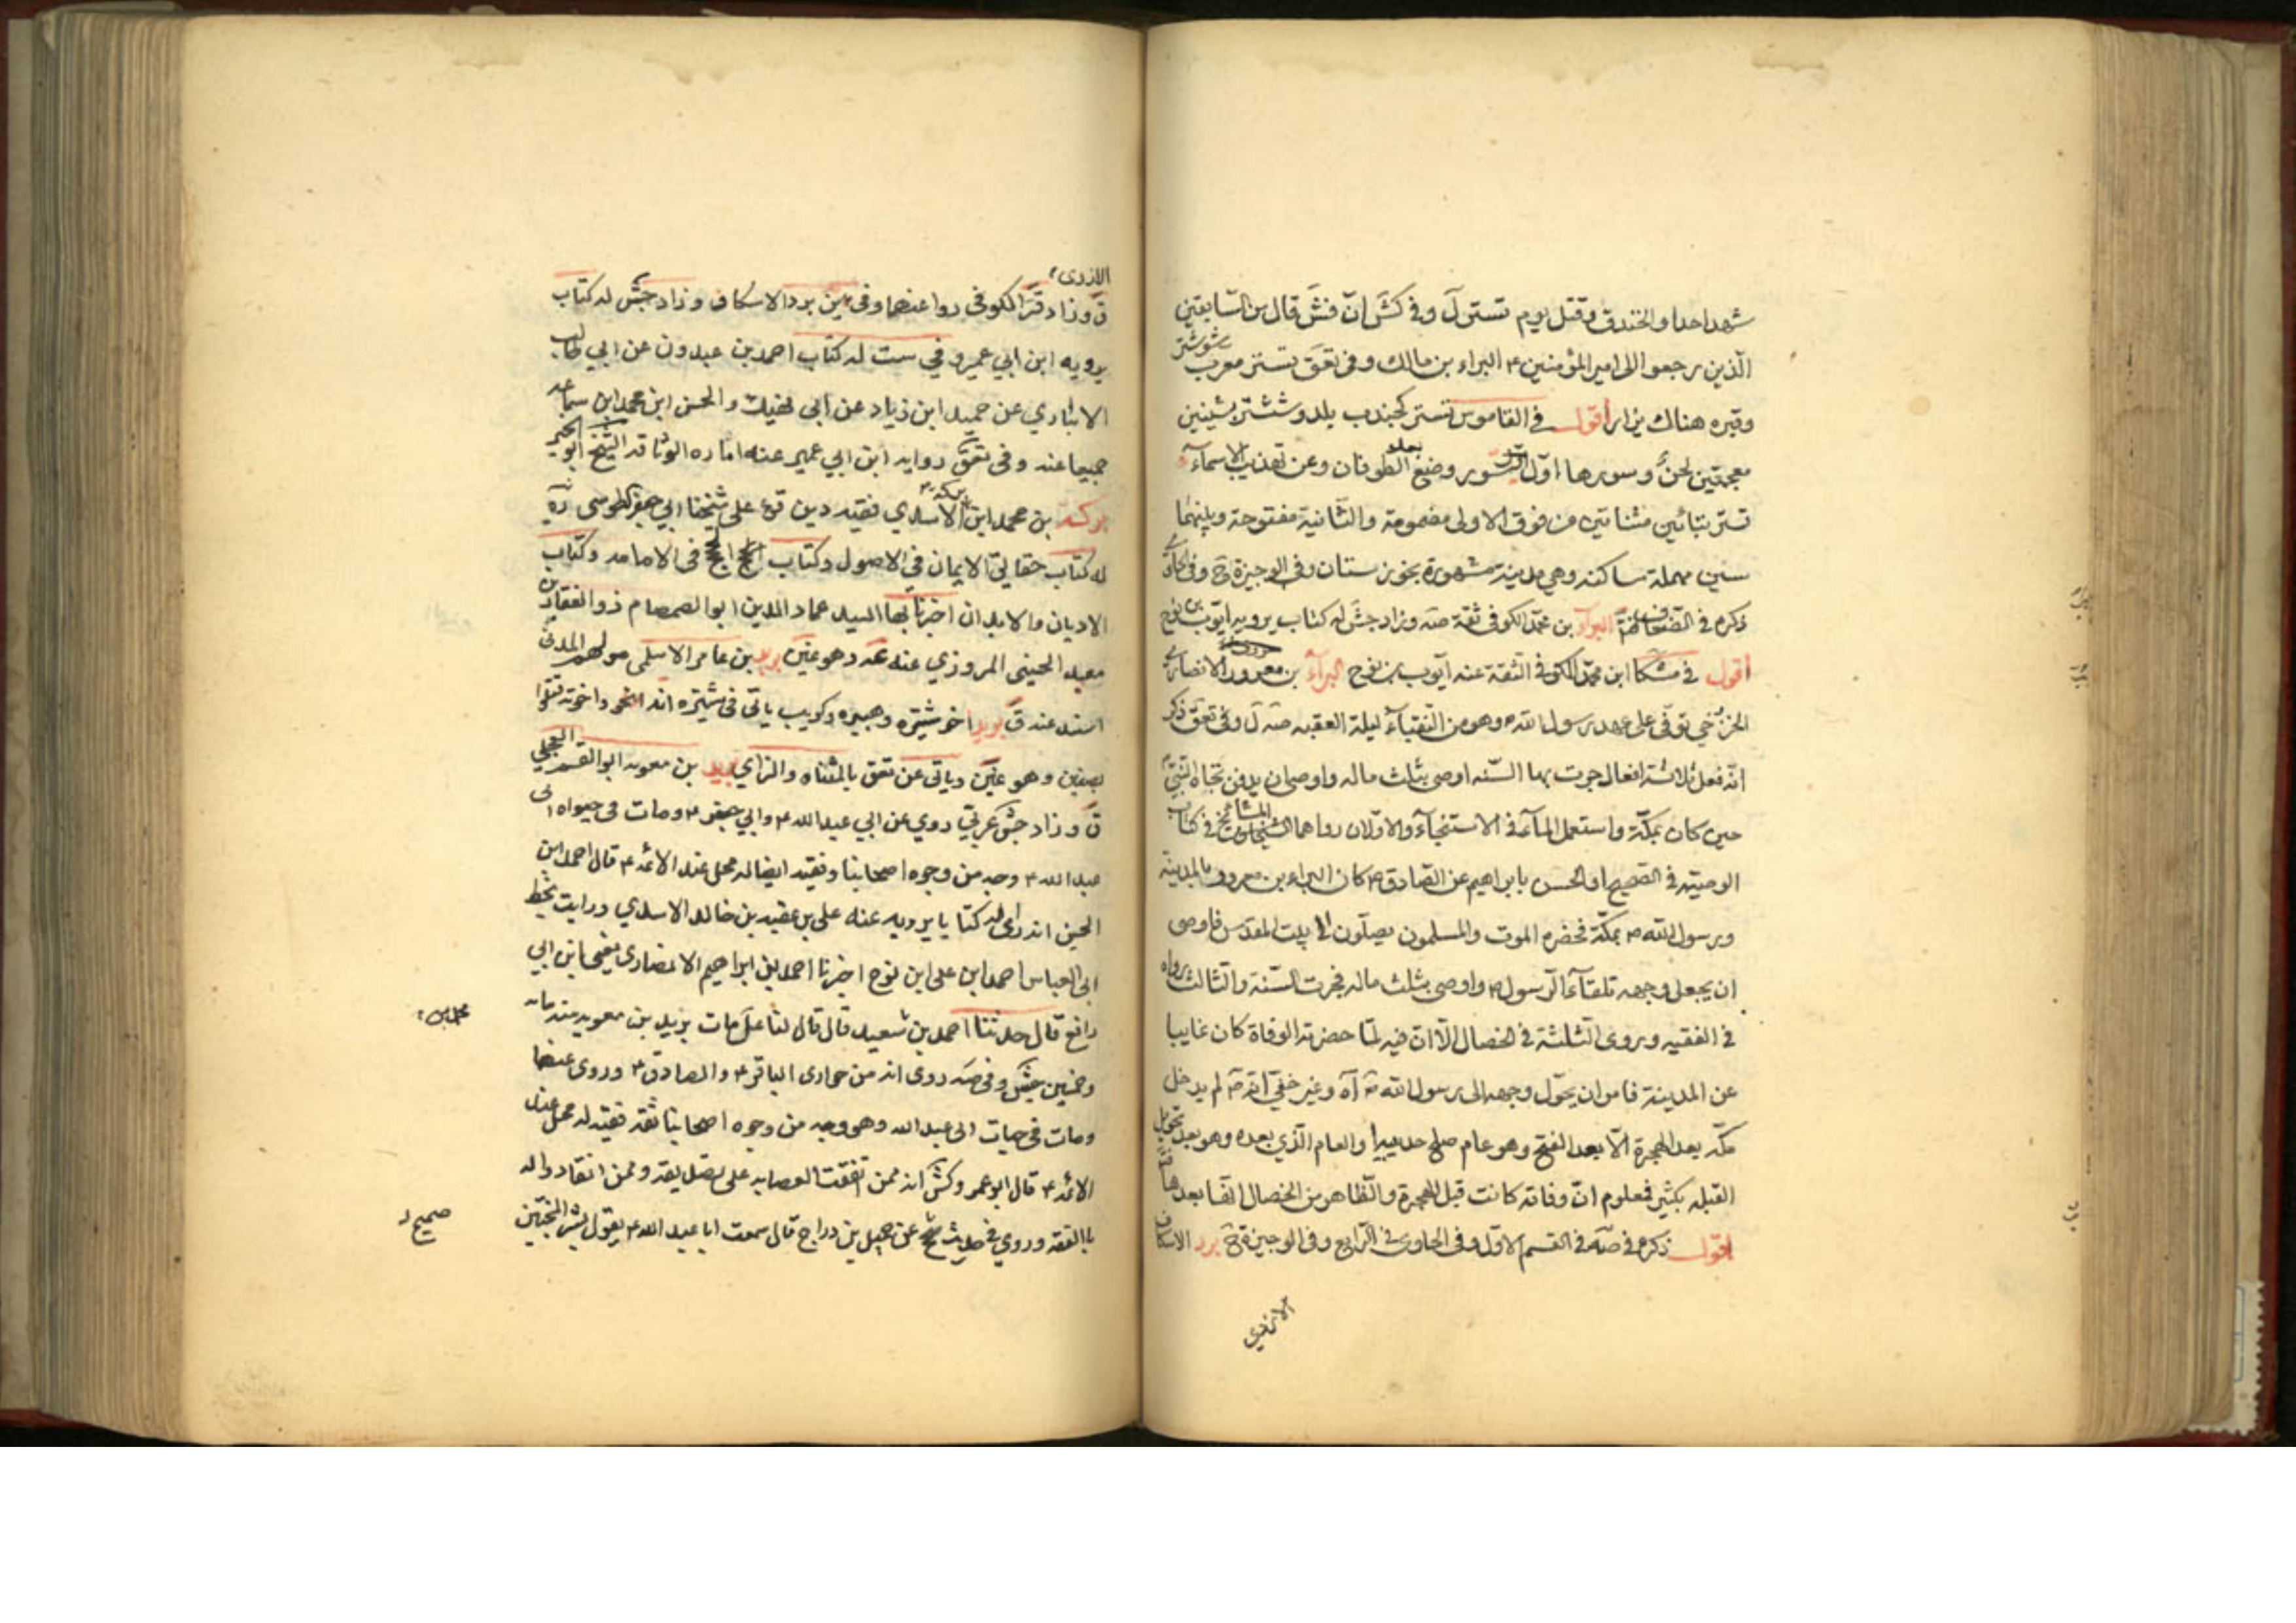 شهد احدا والخندق وقتل يوم تستر ل وفي كش ان فش قال من السابقين
الذين رجعوا الى امير المؤمنين ع البراء بن مالك وفي تعق تستر معرب شوشتر
وقبره هناك يزار اقول في القاموس تستر كجندب بلد وششتر بشينين
معجمتين لحن وسورها اول سور وضع بعد الطوفان وعن تهذيب الاسماء
تستر بتائين مثناتين من فوق الاولى مضمومة والثانية مفتوحة وبينهما
سين مهملة ساكنة وهي مدينة مشهورة بخوزستان وفي الوجيزة ح وفي الحاوي
ذكره في الضعاف البراء بن محمد الكوفي ثقة صه وزاد جش له كتاب يرويه ايوب بن نوح
اقول في مشكا ابن محمد الكوفي الثقة عنه ايوب بن نوح البراء بن معرور الانصاري
الخزرجي توفي على عهد رسول الله ص وهو من النقباء ليلة العقبه صه ل وفي تعق ذكر
انه فعل ثلاثة افعال جرت بها السنه اوصى بثلث ماله واوصى ان يدفن تجاه النبي
حين كان بمكة واستعمل الماء في الاستنجاء والاولان رواهما المشائخ في كتاب
الوصية في الصحيح او الحسن بابراهيم عن الصادق ع كان البراء بن معرور بالمدينة
ورسول الله ص بمكة فحضره الموت والمسلمون يصلون الى بيت المقدس فاوصى
ان يجعل وجهه تلقاء الرسول ص واوصى بثلث ماله فجرت السنة والثالث رواه
في الفقيه وروى الثلثة في الخصال الا ان فيه لما حضرته الوفاة كان غايبا
عن المدينة فامر ان يحول وجهه الى رسول الله ص اه وغير خفي انه ص لم يدخل
مكه بعد الهجرة الا بعد الفتح وهو عام صلح حديبيه والعام الذي بعده وهو بعد تحويل
القبلة بكثير فمعلوم ان وفاته كانت قبل الهجرة والظاهر من الخصال انها بعدها
اقول ذكره في صه في القسم الاول وفي الحاوي في الرابع وفي الوجيزة ح برد الاسكاف
الازدي
ق وزاد قر الكوفي روا عنهما وفي ين برد الاسكاف وزاد جش له كتاب
يرويه ابن ابي عمير وفي ست له كتاب احمد بن عبدون عن ابي طالب
الانباري عن حميد ابن زياد عن ابي نهيك والحسن ابن محمد ابن سماعه
جميعا عنه وفي تعق روايه ابن ابي عمير عنه اماره الوثاقه الشيخ ابو الخير
بركة بن محمد ابن بركة الاسدي فقيه دين قرء على شيخنا ابي جعفر الطوسي ره
له كتاب حقايق الايمان في الاصول وكتاب الحجج في الامامه وكتاب
الاديان والابدان اخبرنا بها السيد عماد الدين ابو الصمصام ذو الفقار بن
معبد الحسيني المروزي عنه عه وهو عين بريد بن عامر الاسلمي مولهم المدني
اسند عنه ق بريد اخو شتيره وهبيره وكريب ياتي في شتيره انه اخو واخوته قتلوا
بصفين وهو عين وياتي عن تعق بالمثناه والزاي بريد بن معويه ابو القسم العجلي
ق وزاد جش عربي روي عن ابي عبد الله ع وابي جعفر ع ومات في حيواه ابي
عبد الله ع وجه من وجوه اصحابنا وفقيه ايضا له محل عند الائمه ع قال احمد ابن
الحسين انه راى له كتابا يرويه عنه علي بن عقبه بن خالد الاسدي ورايت بخط
ابي العباس احمد ابن علي ابن نوح اخبرنا احمد بن ابراهيم الانصاري يعني ابن ابي
رافع قال حدثنا احمد بن سعيد قال قال لنا علي مات بريد بن معويه سنه مائه
وخمسين جش وفي صه روى انه من حواري الباقر ع والصادق ع وروى عنهما
ومات في حيات ابي عبد الله وهو وجه من وجوه اصحابنا ثقه فقيه له محل عند
الائمه ع قال ابو عمرو كش انه ممن اتفقت العصابه على تصديقه وممن انقادوا له
بالفقه وروي في حديث صحيح عن جميل بن دراج قال سمعت ابا عبد الله ع يقول بشر المخبتين